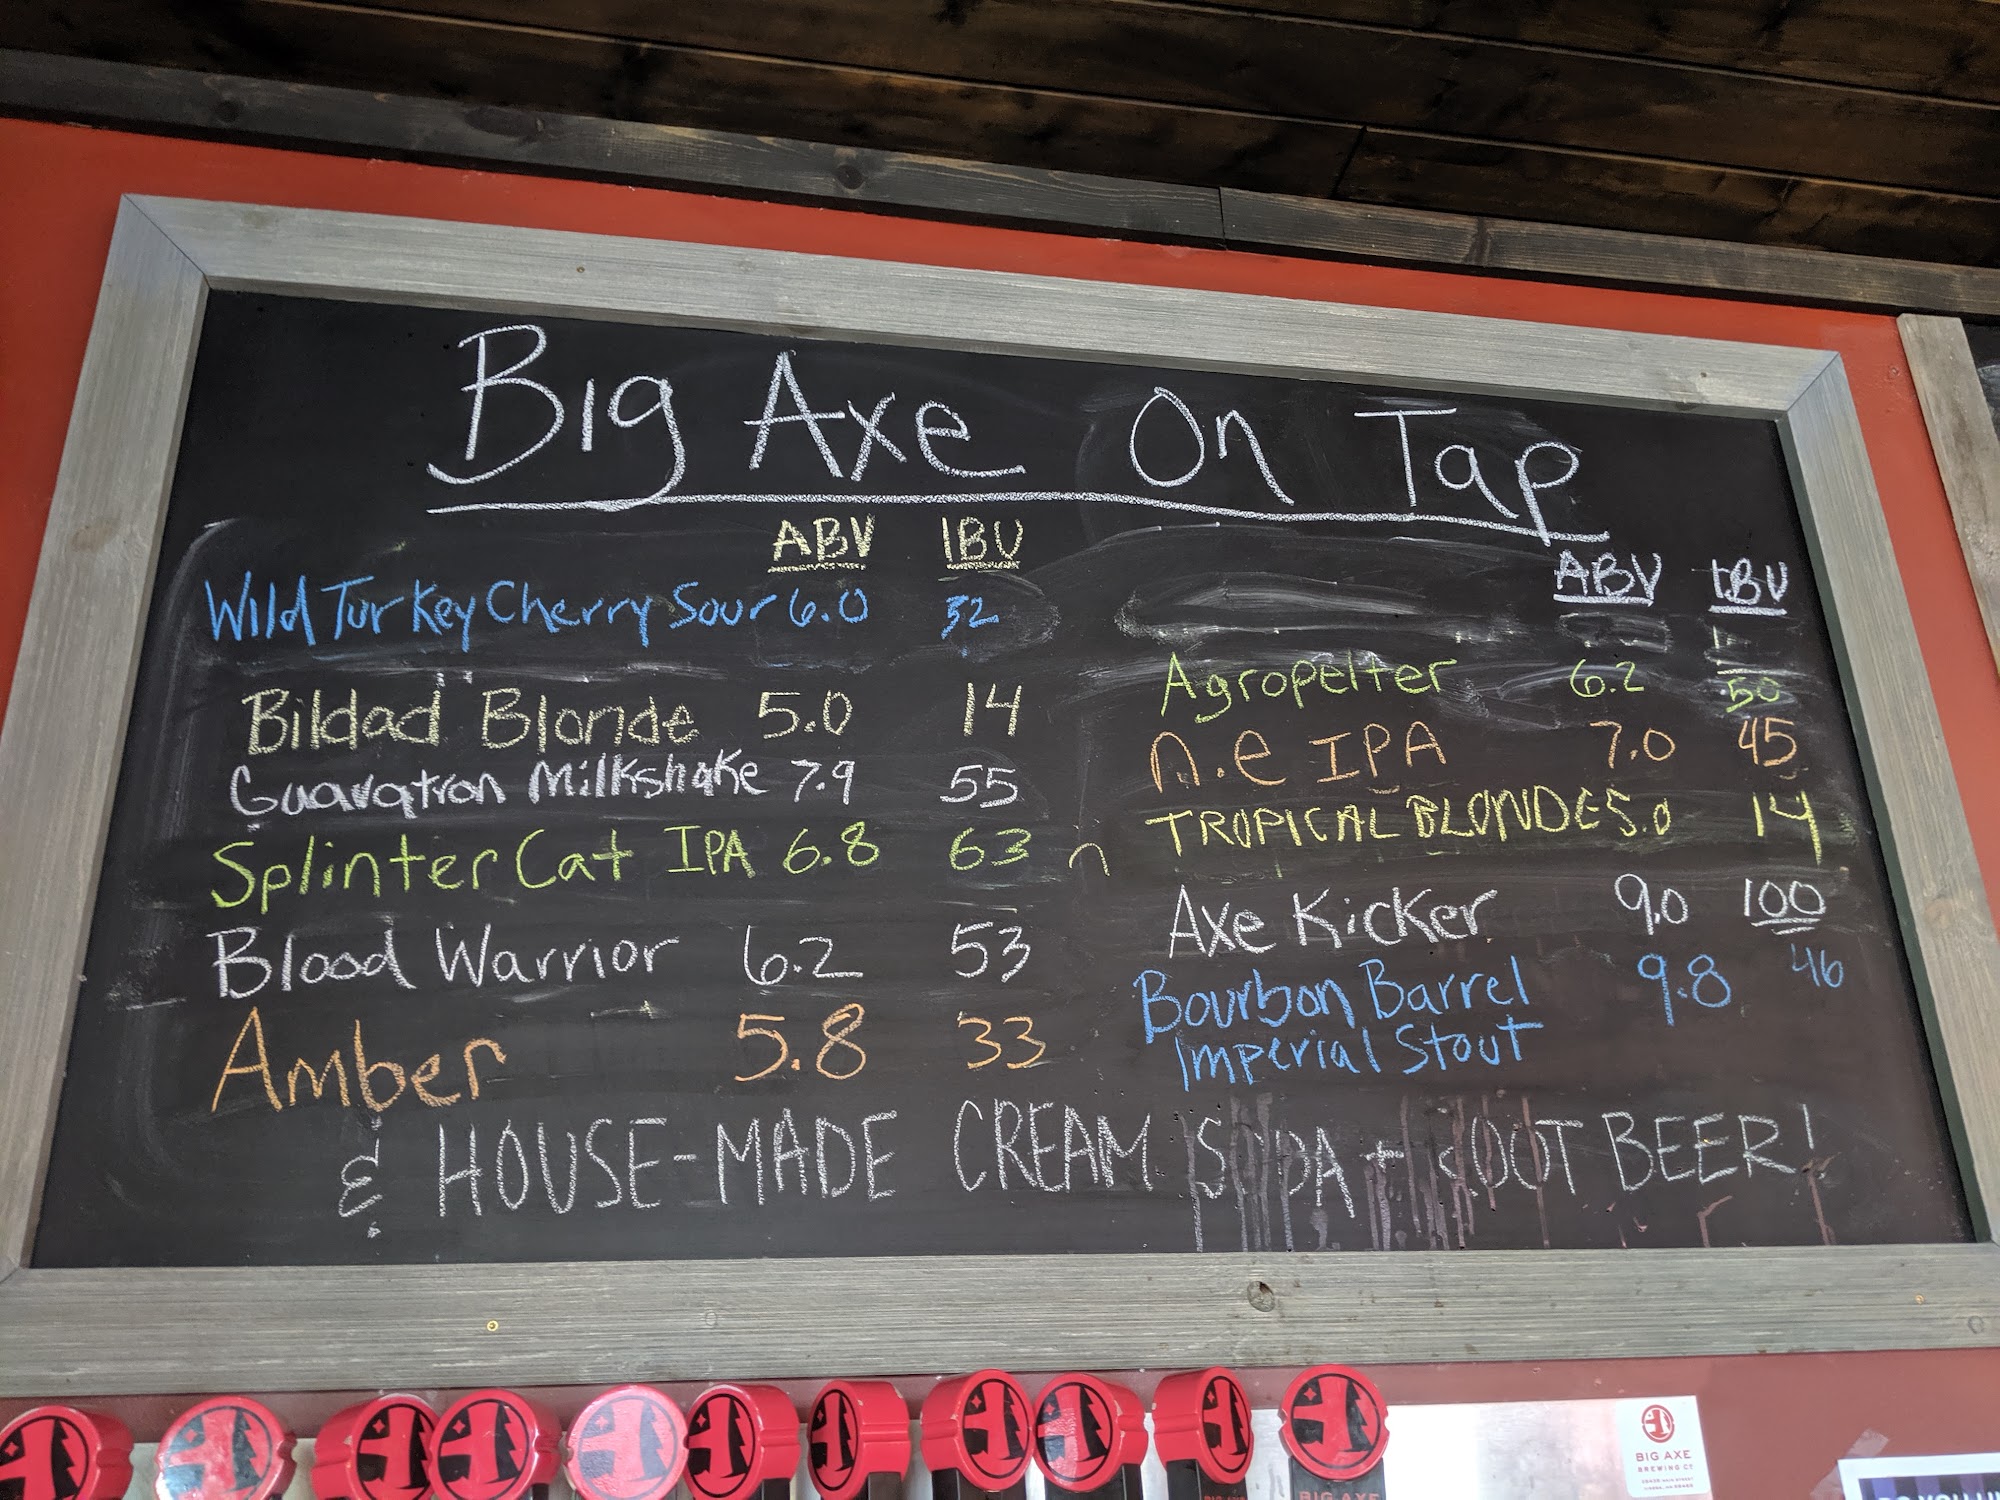 Big Axe On Tap
ABV IBU
Wild Turkey Cherry Sour 6.0 32
Bildad Blonde 5.0 14
Guavatron Milkshake 7.9 55
Splinter Cat IPA 6.8 63
Blood Warrior 6.2 53
Amber 5.8 33
ABV IBU
Agropelter 6.2 50
n.e IPA 7.0 45
TROPICAL BLONDE 5.0 14
Axe Kicker 9.0 100
Bourbon Barrel 9.8 46
Imperial Stout
& HOUSE-MADE CREAM SODA + ROOT BEER!
BIG AXE
BREWING CO
BIG AXE